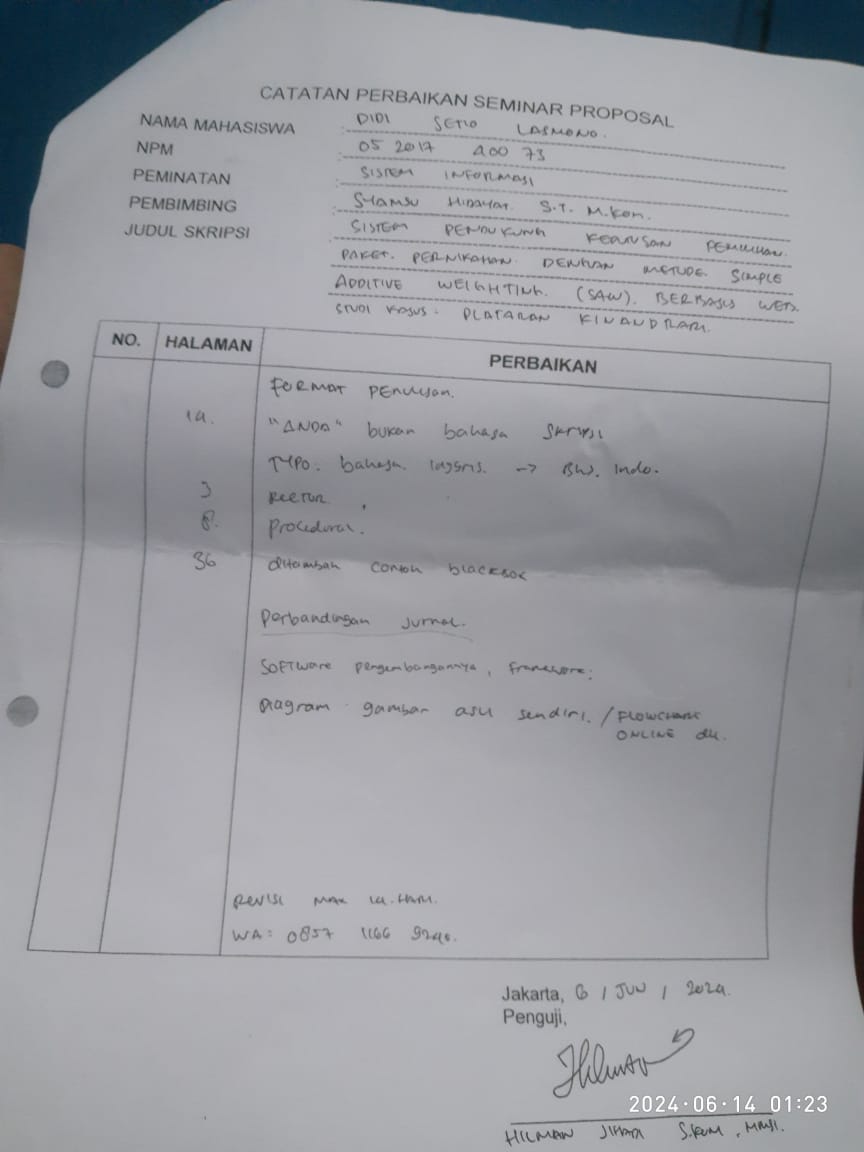 CATATAN PERBAIKAN SEMINAR PROPOSAL
NAMA MAHASISWA : DIDI SETIO LASMONO.
NPM : 05 2017 400 73
PEMINATAN : SISTEM INFORMASI
PEMBIMBING : SYAMSU HIDAYAT. S.T. M.Kom.
JUDUL SKRIPSI : SISTEM PENDUKUNG KEPUTUSAN PEMILIHAN
PAKET PERNIKAHAN DENGAN METODE SIMPLE
ADDITIVE WEIGHTING (SAW). BERBASIS WEB.
STUDI KASUS : PLATARAN KINANDARI.
NO. HALAMAN PERBAIKAN
FORMAT PENULISAN.
14. "ANDA" bukan bahasa SKRIPSI
TYPO. bahasa Inggris. -> Bhs. Indo.
3
8. Procedural.
36 ditambah contoh blackbox
Perbandingan Jurnal.
SOFTWARE pengembangannya, framework.
Diagram gambar asli sendiri. / FLOWCHART
ONLINE dll.
REVISI MAX 14. HARI.
WA : 0857 1166 9240.
Jakarta, 6 / JUNI / 2024.
Penguji,
2024·06·14 01:23
HILMAN JIHADI S.Kom, MMSI.